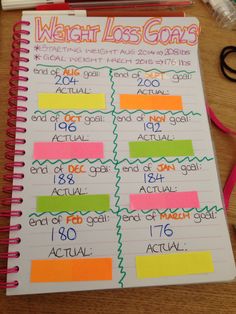 WEIGHT LOSS GOALS
* STARTING WEIGHT AUG 2014 → 208 lbs
* GOAL WEIGHT MARCH 2015 → 176 lbs
end of AUG goal:
204
ACTUAL:
end of SEPT goal:
200
ACTUAL:
end of OCT goal:
196
ACTUAL:
end of NOV goal:
192
ACTUAL:
end of DEC goal:
188
ACTUAL:
end of JAN goal:
184
ACTUAL:
end of Feb goal:
180
ACTUAL:
end of MARCH goal:
176
ACTUAL: